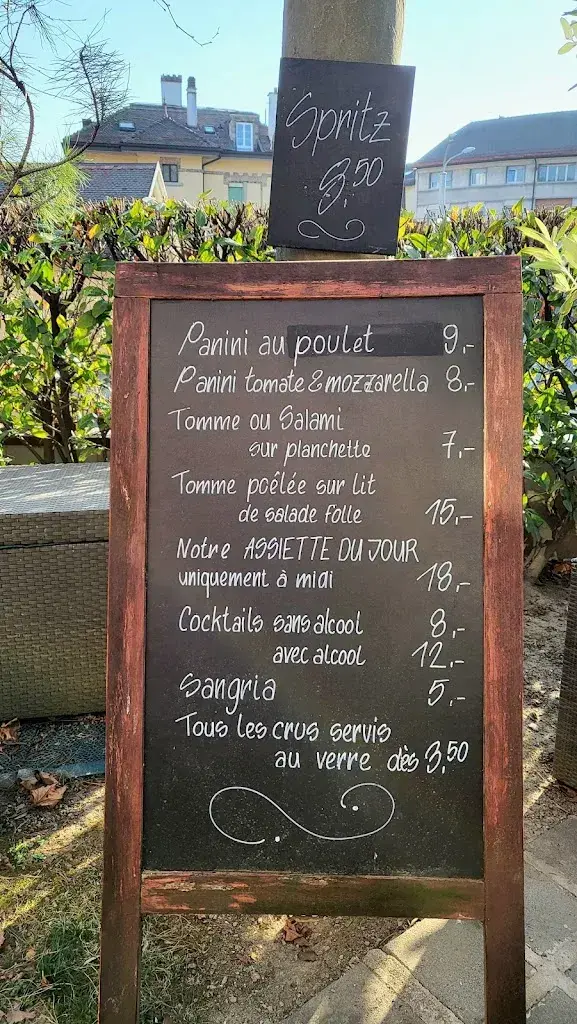 Spritz
3.50
Panini au poulet 9.-
Panini tomate & mozzarella 8.-
Tomme ou Salami
sur planchette 7.-
Tomme poêlée sur lit
de salade folle 15.-
Notre ASSIETTE DU JOUR
uniquement à midi 18.-
Cocktails sans alcool 8.-
avec alcool 12.-
Sangria 5.-
Tous les crus servis
au verre dès 3.50